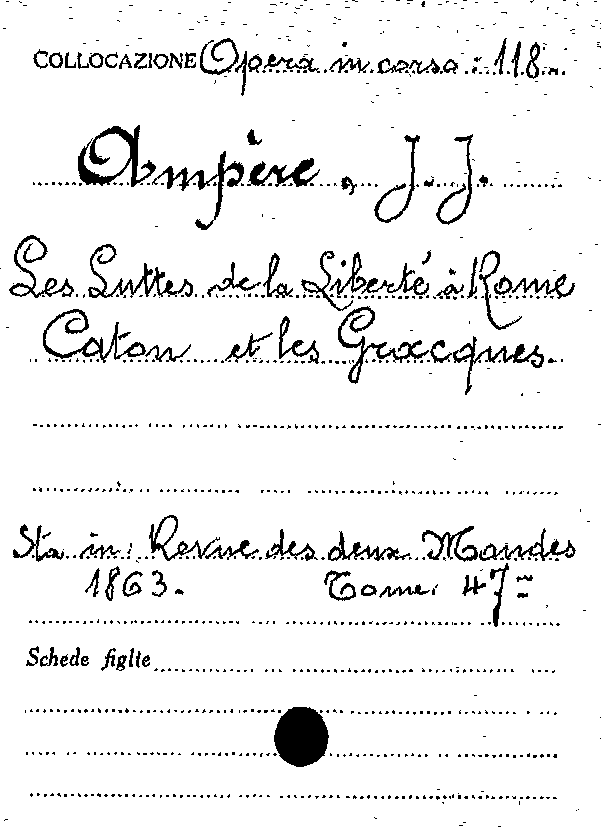 COLLOCAZIONE Opera in corso : 118.
Ampère, J. J.
Les Luttes de la Liberté à Rome
Caton et les Gracques.
Sta in: Revue des deux Mondes
1863. Tome. 47=
Schede figlie